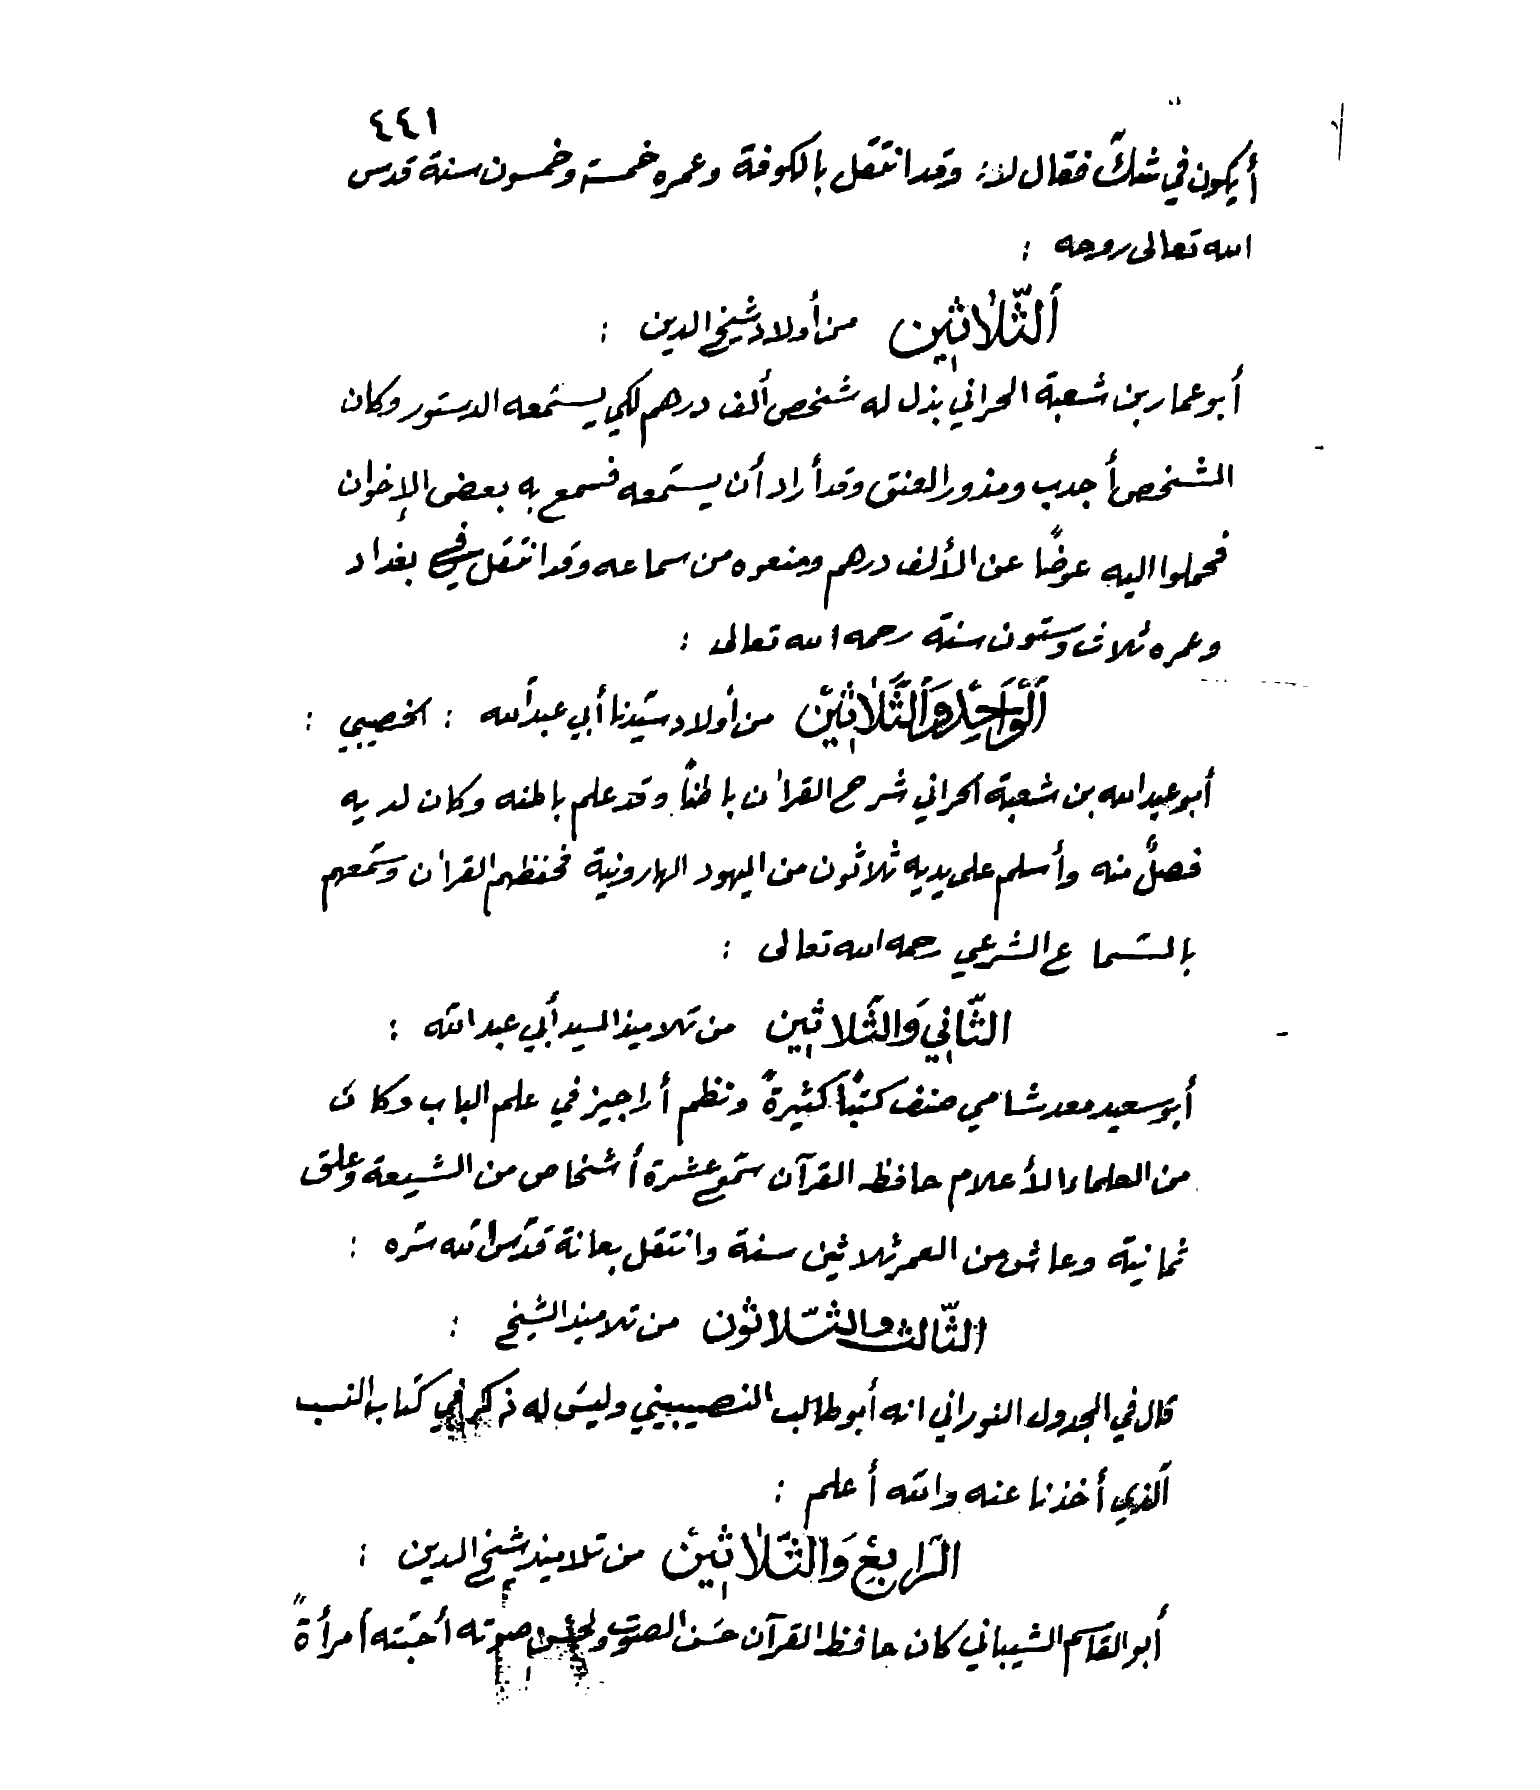 ٤٤١
أيكون في شكّ فقال لا: وقد انتقل بالكوفة وعمره خمسة وخمسون سنة قدس
الله تعالى روحه :
الثّلاثين من أولاد شيخ الدين :
أبو عمار بن شعبة الحراني بذل له شخص ألف درهم لكي يستمعه الدستور وكان
الشخص أجدب ومذور العنق وقد أراد أن يستمعه فسمع به بعض الإخوان
فحملوا اليه عوضًا عن الألف درهم ومنعوه من سماعه وقد انتقل في بغداد
وعمره ثلاث وستون سنة رحمه الله تعالى :
الْوَاحِدُ وَالثَّلاثِيْن من أولاد سيّدنا أبي عبد الله : الخصيبي :
أبو عبد الله بن شعبة الحراني شرح القرآن باطناً وقد علم باطنه وكان لديه
فصلٌ منه وأسلم على يديه ثلاثون من اليهود الهارونية فحفظهم القرآن وسمّعهم
بالسّماع الشرعي رحمه الله تعالى :
الثّانِي وَالثَّلاثِين من تلاميذ السيد أبي عبد الله :
أبو سعيد معد شامي صنف كتبًا كثيرةً ونظم أراجيز في علم الباب وكان
من العلماء الأعلام حافظ القرآن سمّع عشرة أشخاص من الشيعة وعلق
ثمانية وعاش من العمر ثلاثين سنة وانتقل بعانة قدّس الله سّره :
الثّالث والثّلاثون من تلاميذ الشيخ :
قال في الجدول النوراني انه أبو طالب النصيبيني وليس له ذكر في كتاب النسب
الذي أخذنا عنه والله أعلم :
الرابِعْ وَالثّلاثِيْن من تلاميذ شيخ الدين :
أبو القاسم الشيباني كان حافظ القرآن حسَن الصوت ولحسن صوته أحبّته أمرأةً